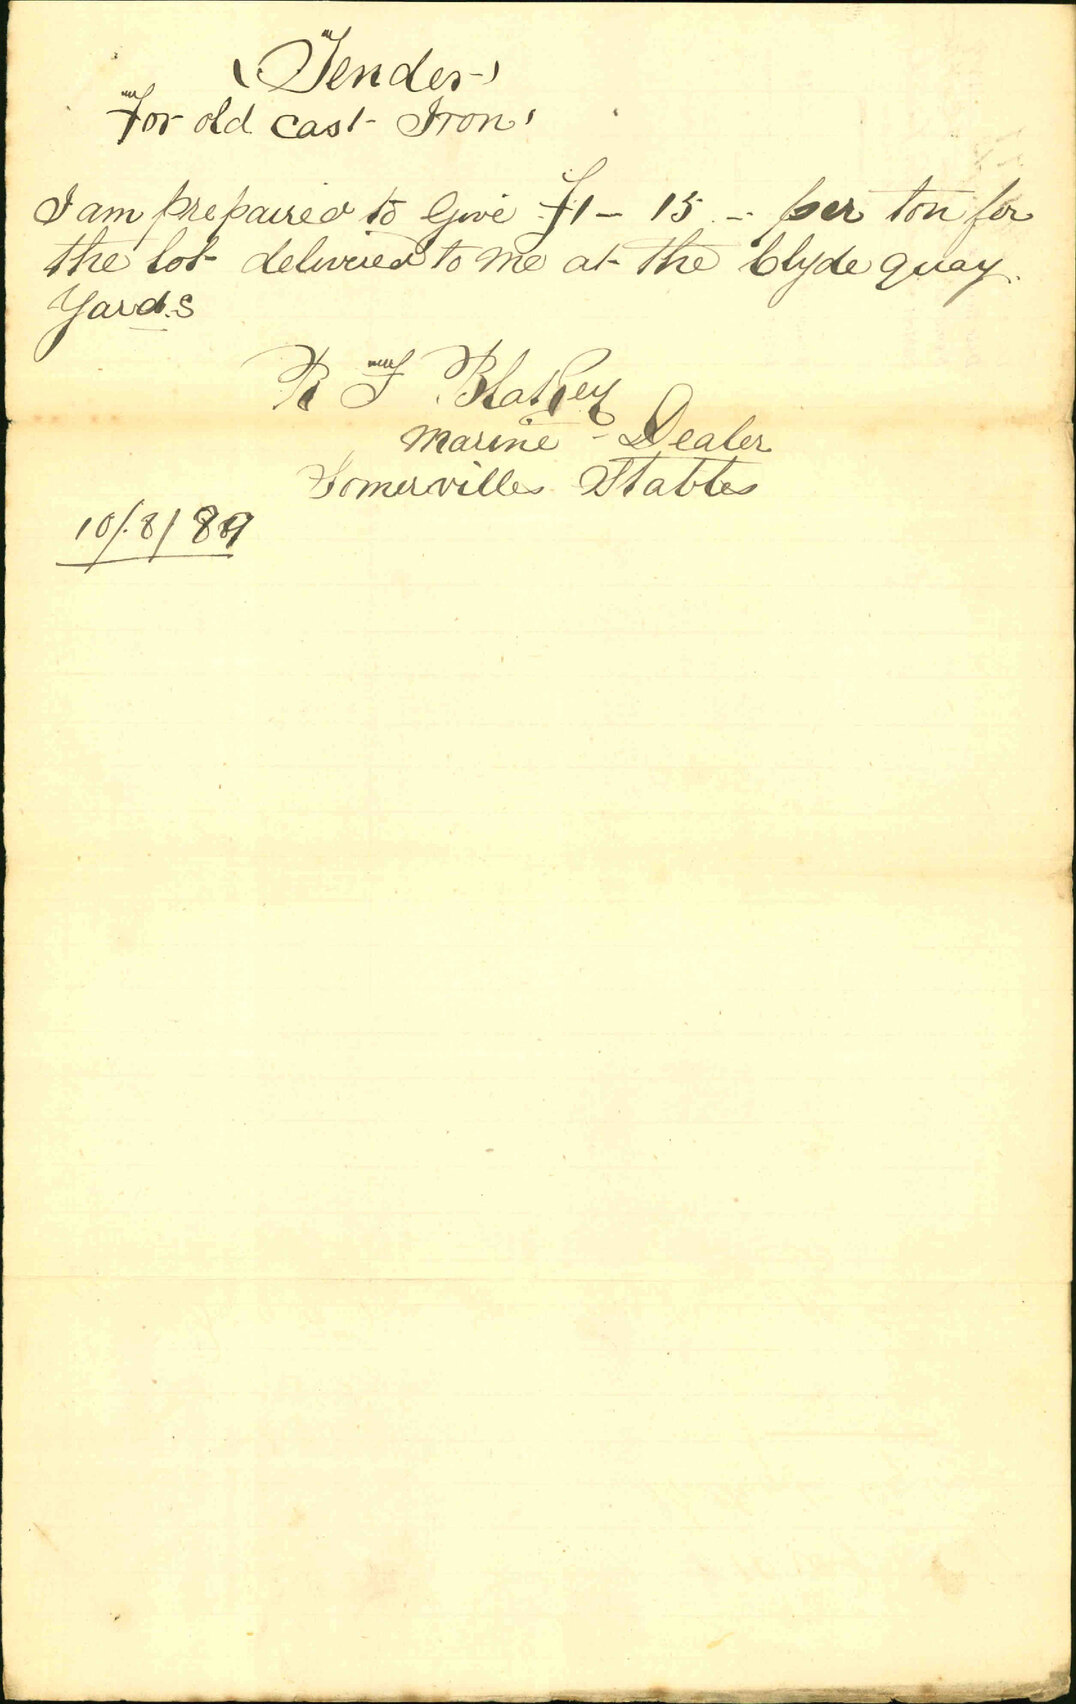 (Tender)
For old cast Iron
I am prepaired to Give £1 - 15 - per ton for
the lot delivered to me at the Clyde quay
Yards
R F Blakey
Marine - Dealer
Somervilles Stables
10/8/89